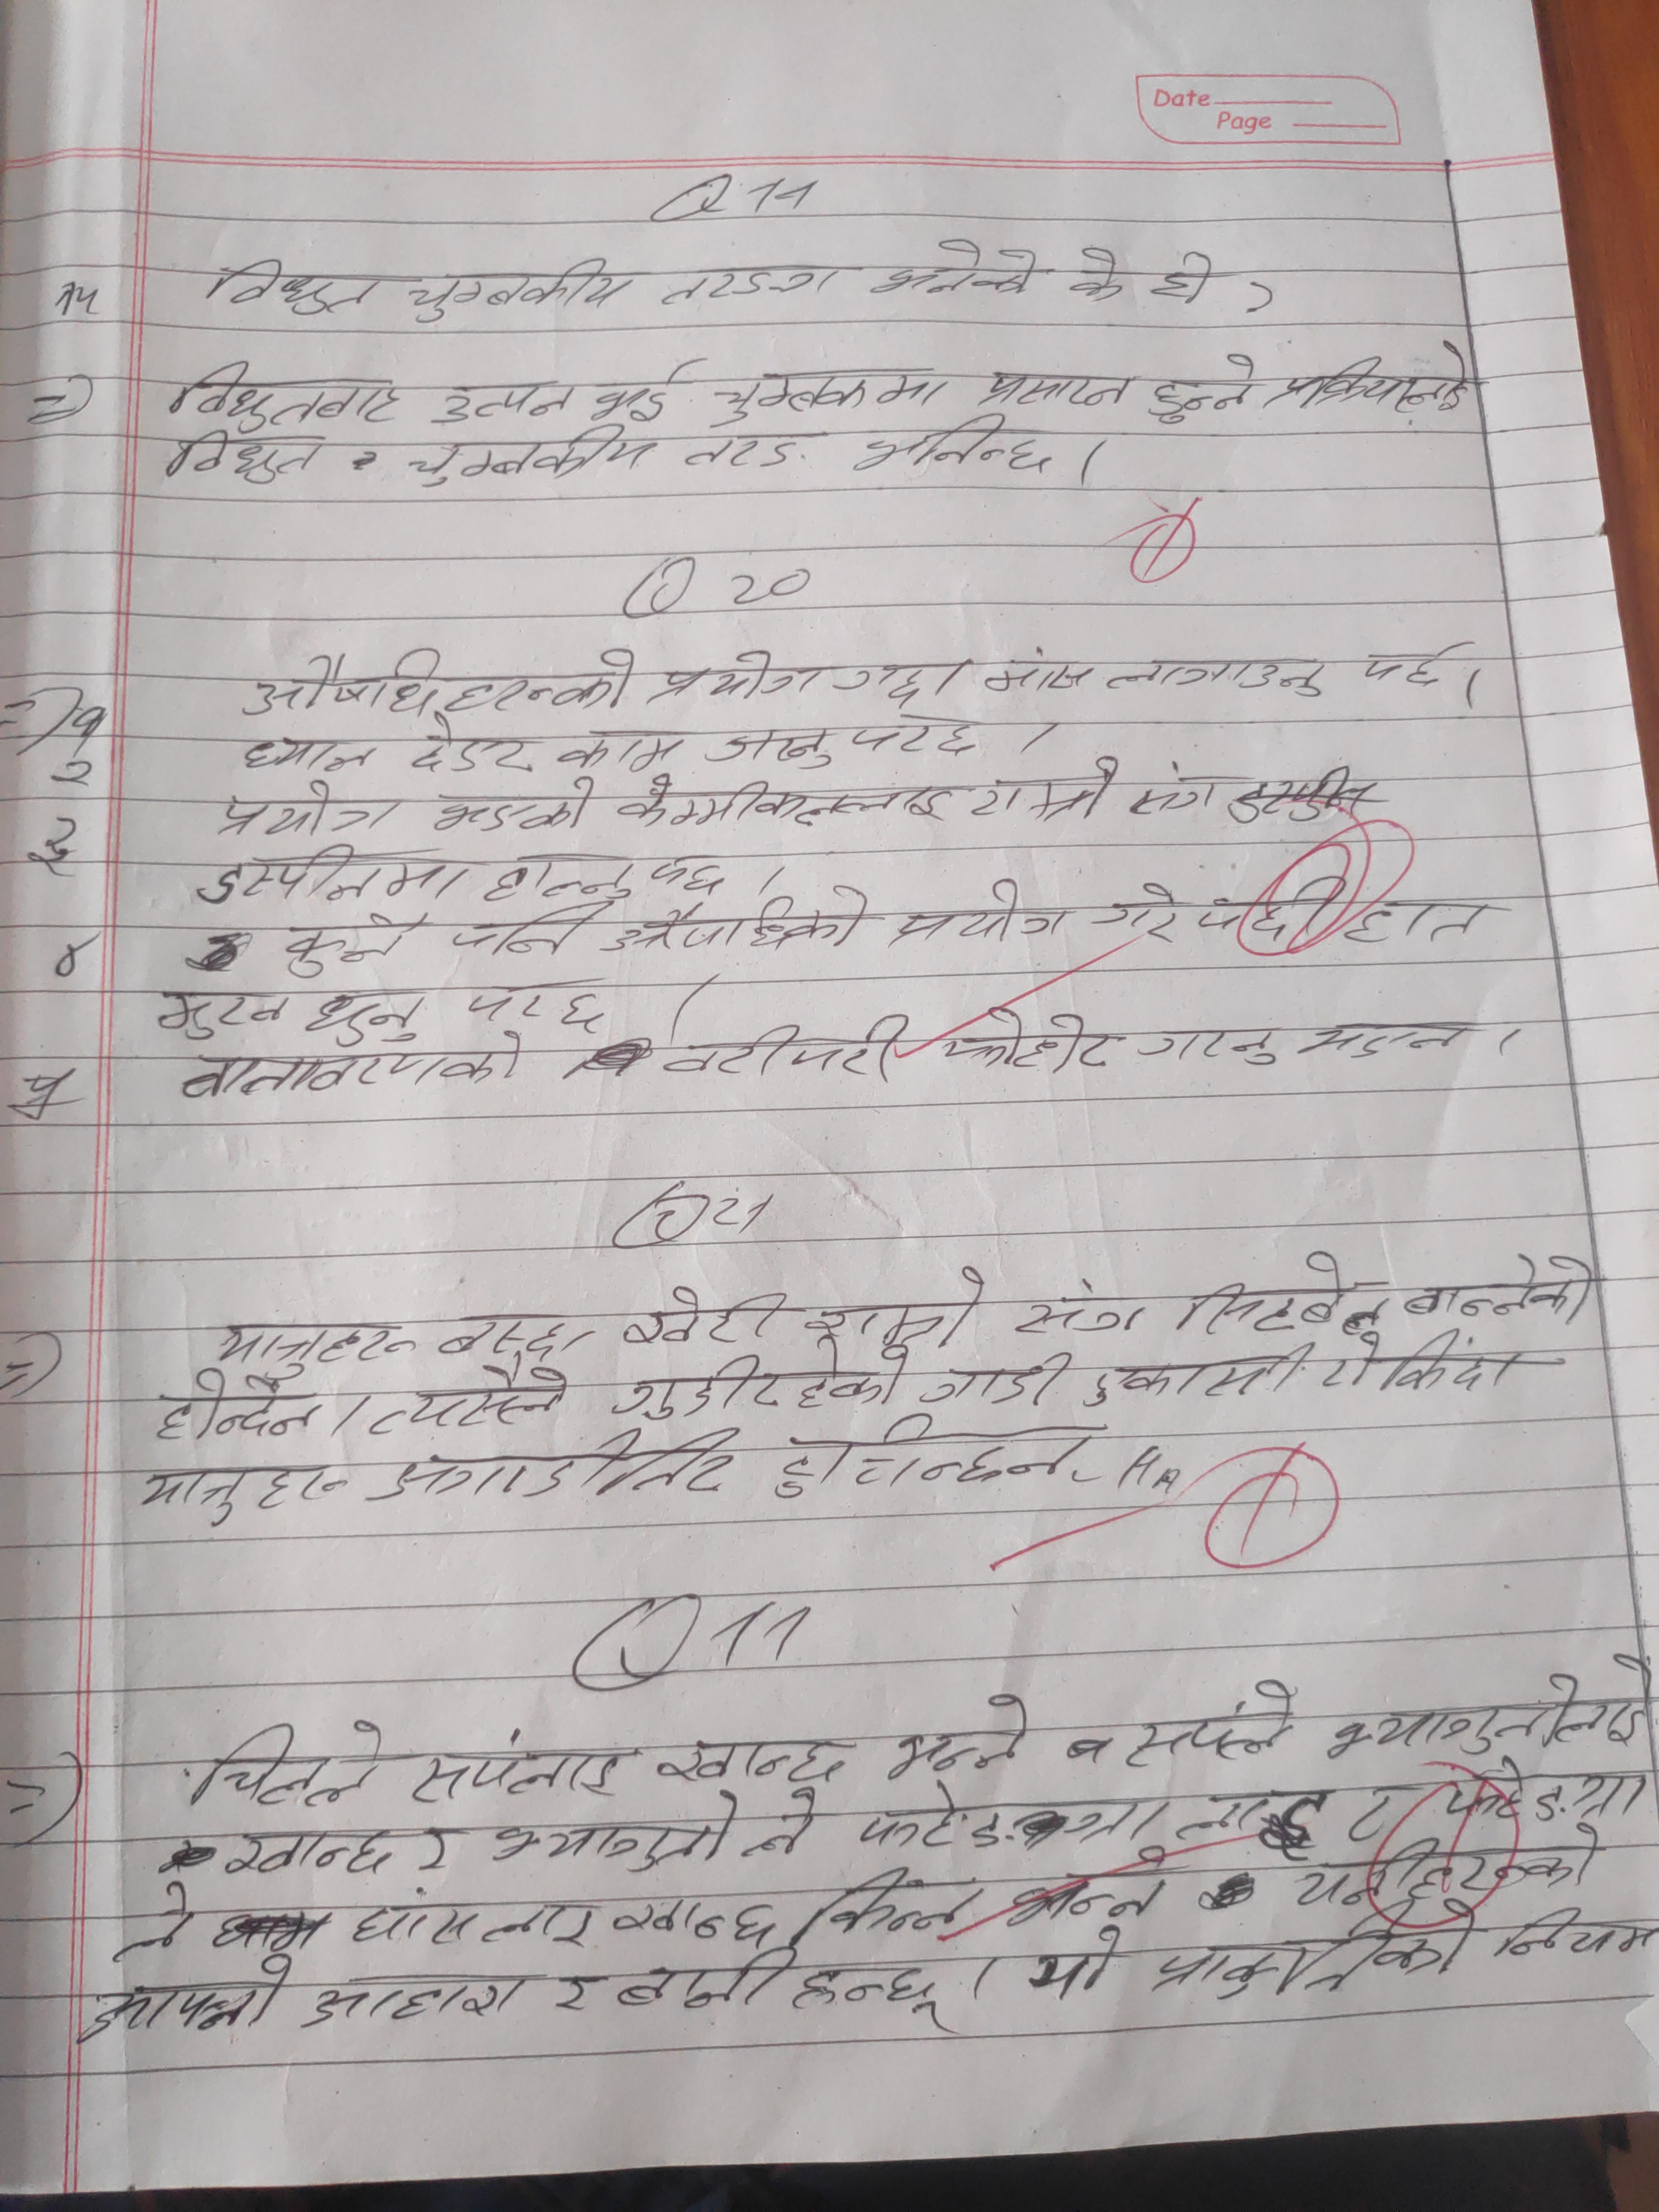 Date
Page
Q 14
१५ विधुत चुम्बकीय तरङग भनेको के हो ?
=) विधुतबाट उत्पन भई चुम्बकमा प्रसारन हुन्ने प्रक्रियालाई
विधुत चुम्बकीय तरङ भनिन्छ।
1
Q 20
=) १ औषधिहरुको प्रयोग गर्दा मास्स लागाउनु पर्छ।
२ ध्यान देइर काम गरनु परछ।
३ प्रयोग भइको केम्मीकललाइ राम्रो संग
डस्पीनमा हाल्नु पर्छ।
४ कुनै पनि औषधिको प्रयोग गरे पछी हात
मुरन्त धुनु परछ।
५ वातावरणको वरीपरी फोहोर गरनु भइन।
Q 21
=) यात्रुहरु बस्दा खेरी राम्रो संग सिटबेल बान्नेको
होन्दैन। त्यसैले गुडीरहेको गाडी एकासी रोकिंदा
यात्रुहरु अगाडीतिर हुत्तिन्छन्
1
Q 11
=) चिलले सर्पलाइ खान्छ भन्ने सर्पले भ्यागुतोलाई
खान्छ र भ्यागुतो ले फटेङग्रा लाइ र फटेङग्रा
ले घांसलाइ खान्छ किन भन्ने यनीहरुको
आफ्नो आहारा र बानी हुन्छ। यो प्राकृतिको नियम